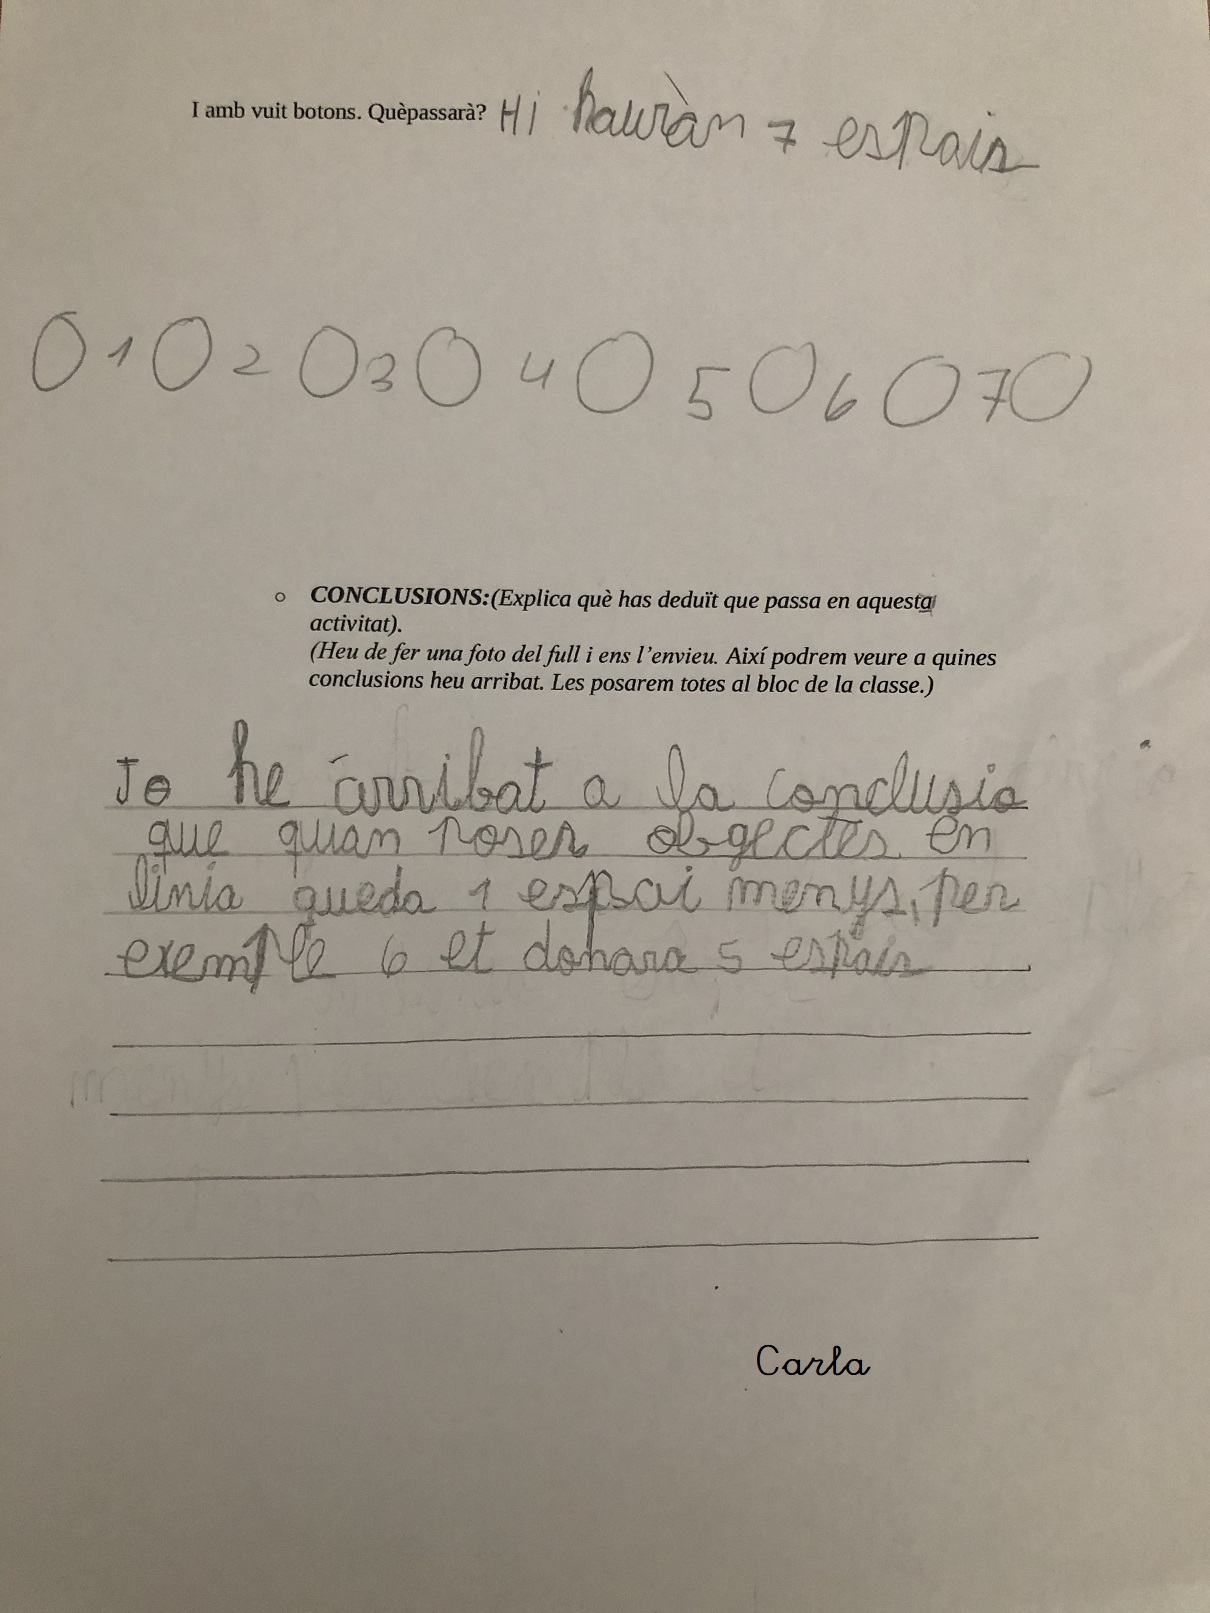 I amb vuit botons. Quèpassarà? Hi hauràn 7 espais
0 1 0 2 0 3 0 4 0 5 0 6 0 7 0
CONCLUSIONS:(Explica què has deduït que passa en aquesta
activitat).
(Heu de fer una foto del full i ens l'envieu. Així podrem veure a quines
conclusions heu arribat. Les posarem totes al bloc de la classe.)
Jo he arribat a la conclusio
que quan poses obgectes en
linia queda 1 espai menys, per
exemple 6 et donara 5 espais
Carla